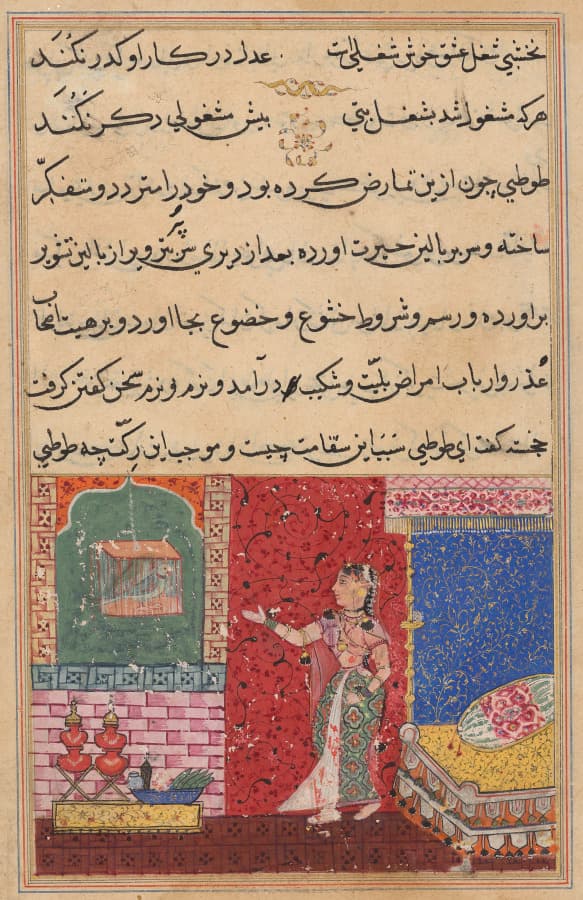 نخشبی شغل عشق خوش شغلی است عدل در کار او کدر نکند
هرکه مشغول شد بشغل بتی بیش مشغولی دکر نکند
طوطی چون ازین تمارض کرده بود و خود را متردد و متفکر
ساخته و سر بر بالین حیرت اورده بعد از دیری سر
براورده و رسم و شروط خشوع و خضوع بجا اورد و بر هیئت اصحاب
عذر وارباب امراض بلیّت و شکیب درآمد و نرم و نرم سخن کفتن کرفت
خجسته کفت ای طوطی سبب این سقامت چیست و موجب این رکّت چه طوطی